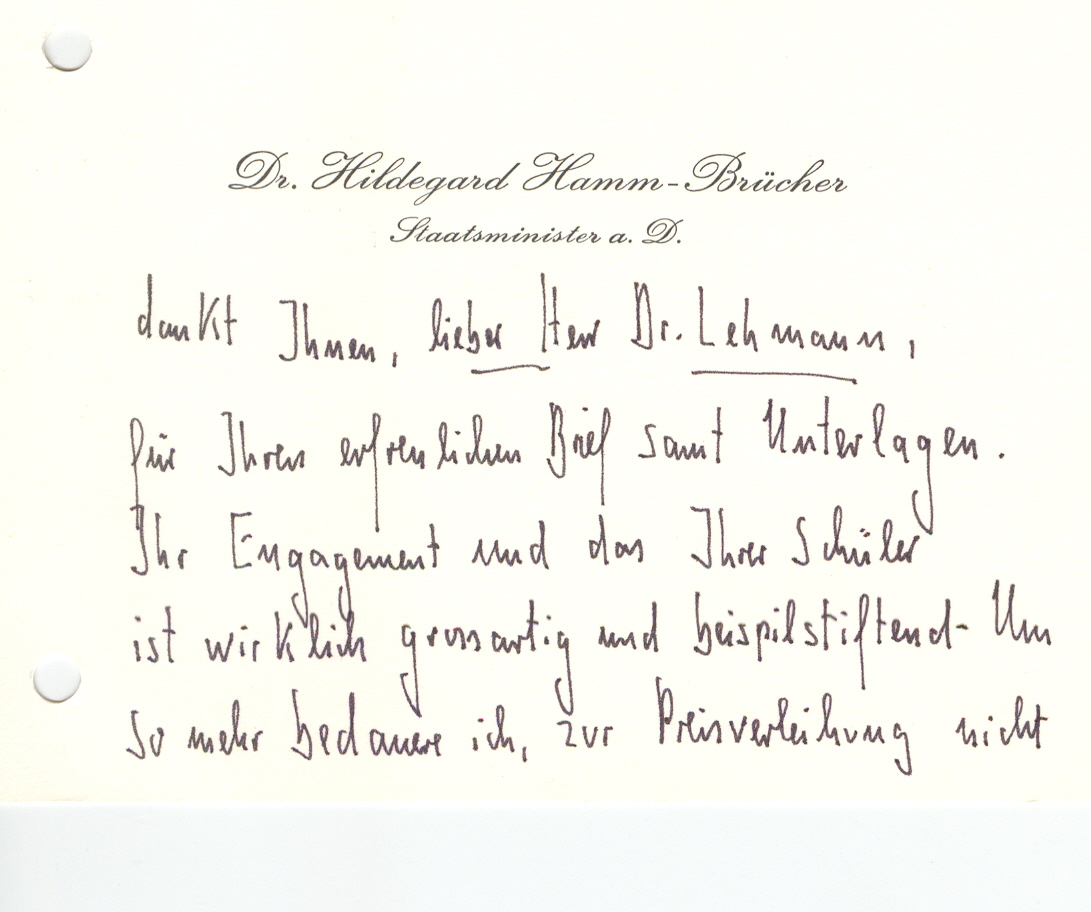 Dr. Hildegard Hamm-Brücher
Staatsminister a. D.
dankt Ihnen, lieber Herr Dr. Lehmann,
für Ihren erfreulichen Brief samt Unterlagen.
Ihr Engagement und das Ihrer Schüler
ist wirklich grossartig und beispilstiftend- Um
so mehr bedauere ich, zur Preisverleihung nicht